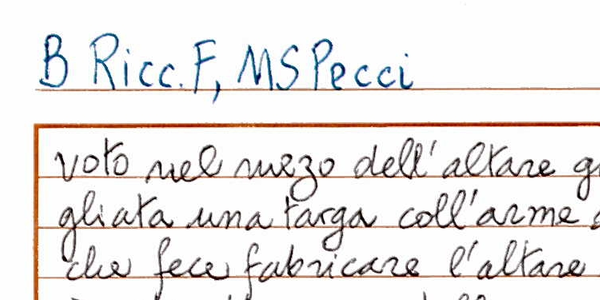 B Ricc. F, MS Pecci
voto nel mezo dell'altare
gliata una targa coll'arme
che fece fabricare l'altare